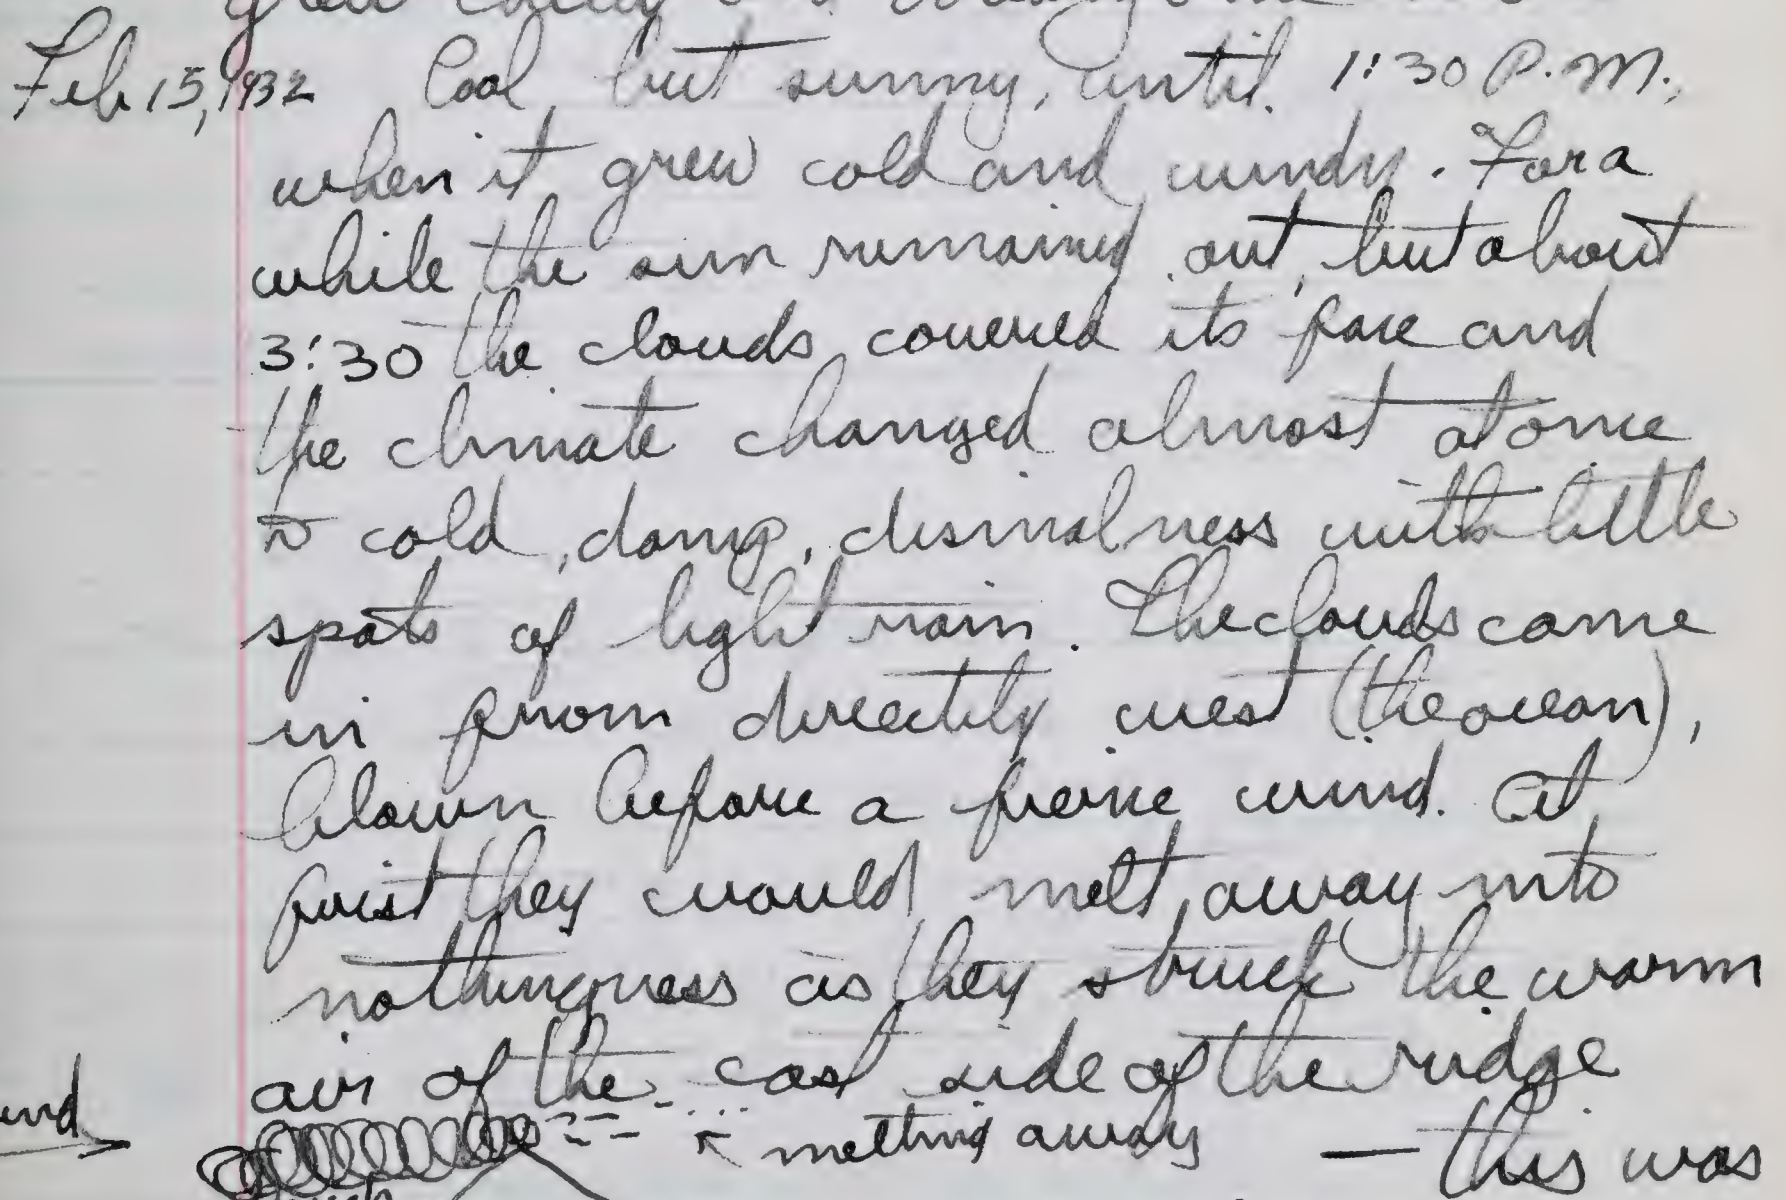 Feb 15, 1932 Cool, but sunny, until 1:30 P.M.,
when it grew cold and windy. For a
while the sun remained out, but about
3:30 the clouds covered its face and
the climate changed almost at once
to cold, damp, dismalness with little
spots of light rain. The clouds came
in from directly west (the ocean),
blown before a fierce wind. At
first they would melt away into
nothingness as they struck the warm
air of the east side of the ridge
melting away — this was